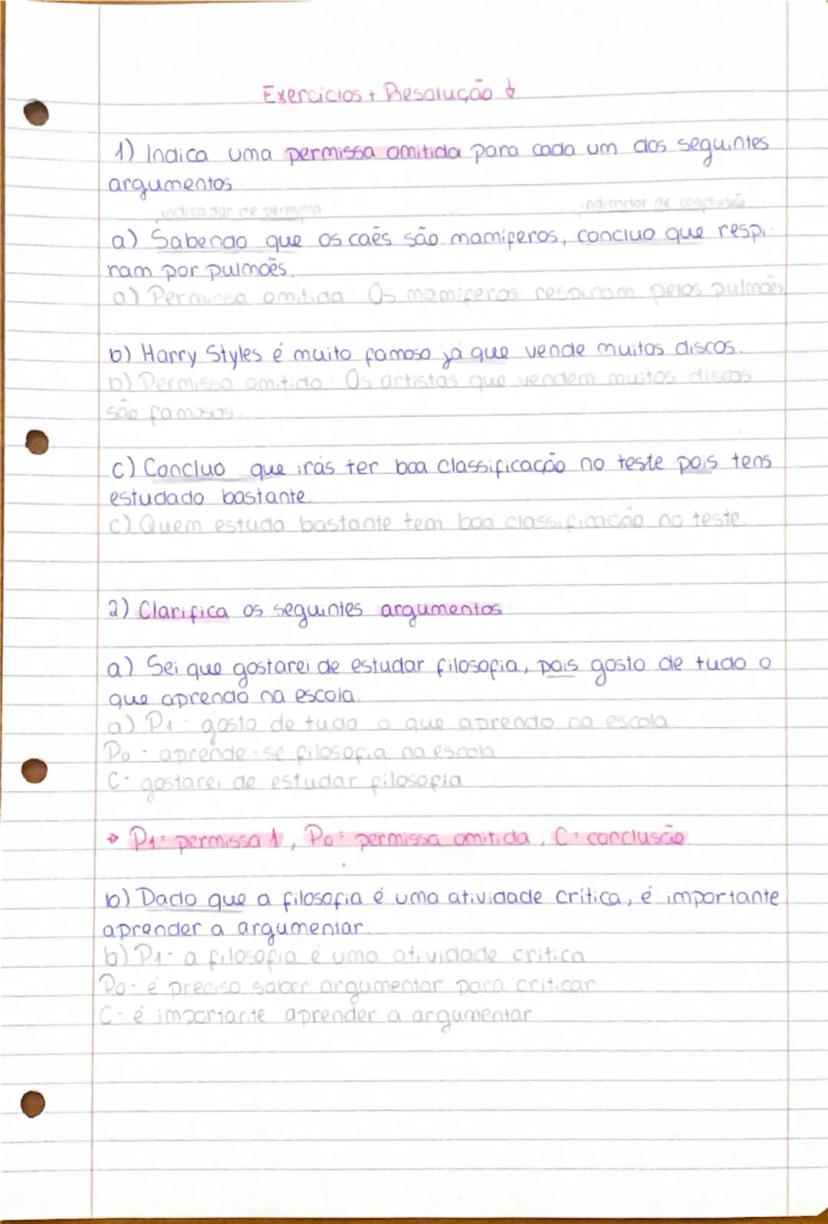 Exercicios + Resolução ↓
1) Indica uma permissa omitida para cada um dos seguintes
argumentos
indicador de permissa indicador de conclusão
a) Sabendo que os caẽs são mamiferos, concluo que respi-
ram por pulmões.
a) Permissa omitida: Os mamiferos respiram pelos pulmões
b) Harry Styles é muito famoso já que vende muitos discos.
b) Permissa omitida: Os artistas que vendem muitos discos
são famosos.
c) Concluo que irás ter boa classificação no teste pois tens
estudado bastante.
c) Quem estuda bastante tem boa classificação no teste.
2) Clarifica os seguintes argumentos
a) Sei que gostarei de estudar filosofia, pois gosto de tudo o
que aprendo na escola.
a) P1 - gosto de tudo o que aprendo na escola.
Po - aprende-se filosofia na escola
C - gostarei de estudar filosofia
→ P1: permissa 1, Po: permissa omitida, C: conclusão
b) Dado que a filosofia é uma atividade crítica, é importante
aprender a argumentar.
b) P1 - a filosofia é uma atividade crítica
Po - é preciso saber argumentar para criticar
C - é importante aprender a argumentar